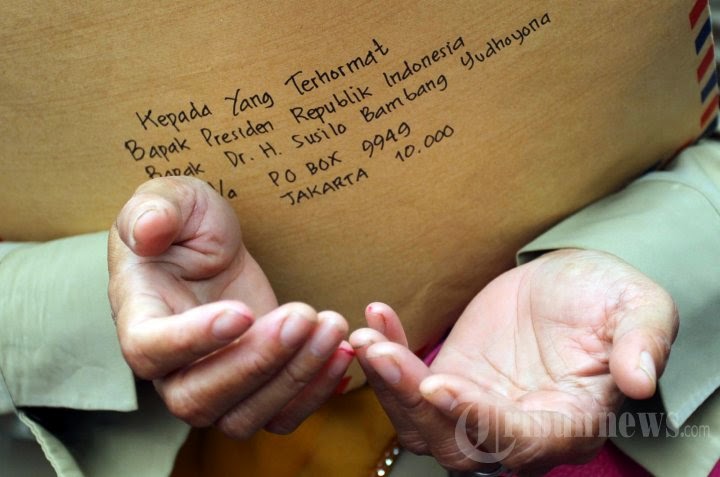 Kepada Yang Terhormat
Bapak Presiden Republik Indonesia
Bapak Dr. H. Susilo Bambang Yudhoyono
PO BOX 9949
JAKARTA 10.000
Tribunnews.com